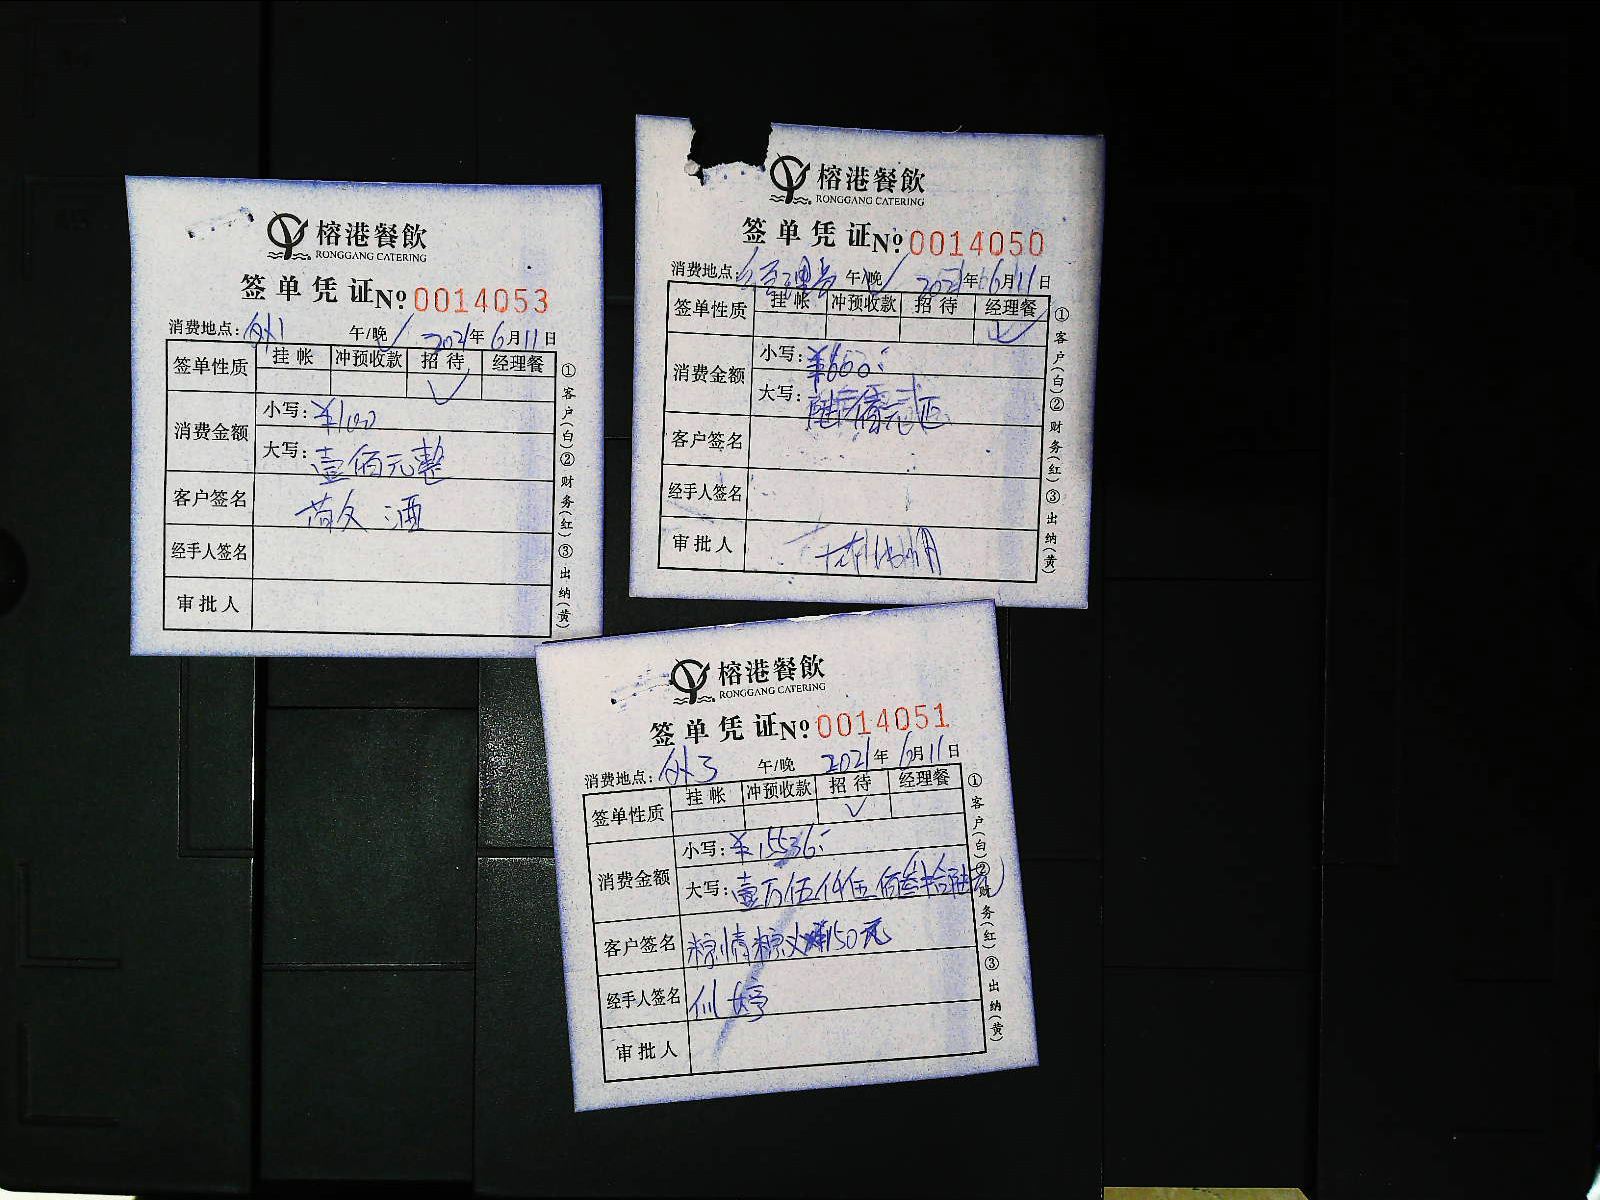 榕港餐飲
RONGGANG CATERING
签单凭证№ 0014053
消费地点: 外1 午/晚 2021年6月11日
签单性质 挂帐 冲预收款 招待 经理餐
消费金额
小写: ¥100
大写: 壹佰元整
客户签名 酒
经手人签名
审批人
①客户(白)②财务(红)③出纳(黄)
榕港餐飲
RONGGANG CATERING
签单凭证№ 0014050
消费地点: 午/晚 2021年6月11日
签单性质 挂帐 冲预收款 招待 经理餐
消费金额
小写: ¥600
大写: 陆佰元正
客户签名
经手人签名
审批人
①客户(白)②财务(红)③出纳(黄)
榕港餐飲
RONGGANG CATERING
签单凭证№ 0014051
消费地点: 外3 午/晚 2021年6月11日
签单性质 挂帐 冲预收款 招待 经理餐
消费金额
小写: ¥15536
大写: 壹万伍仟伍佰叁拾陆元
客户签名 粽情粽 150元
经手人签名 婷
审批人
①客户(白)②财务(红)③出纳(黄)